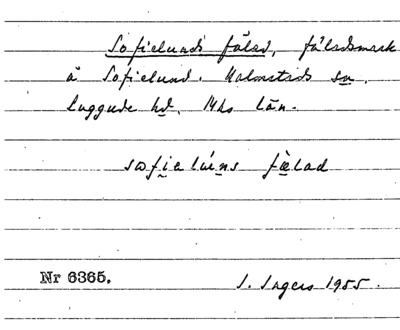 Sofielunds fälad, fäladsmark
å Sofielund. Halmstads sn.
Luggude hd. Mhs län.
sofielúns fælad
Nr 6365.
I. Ingers 1955.